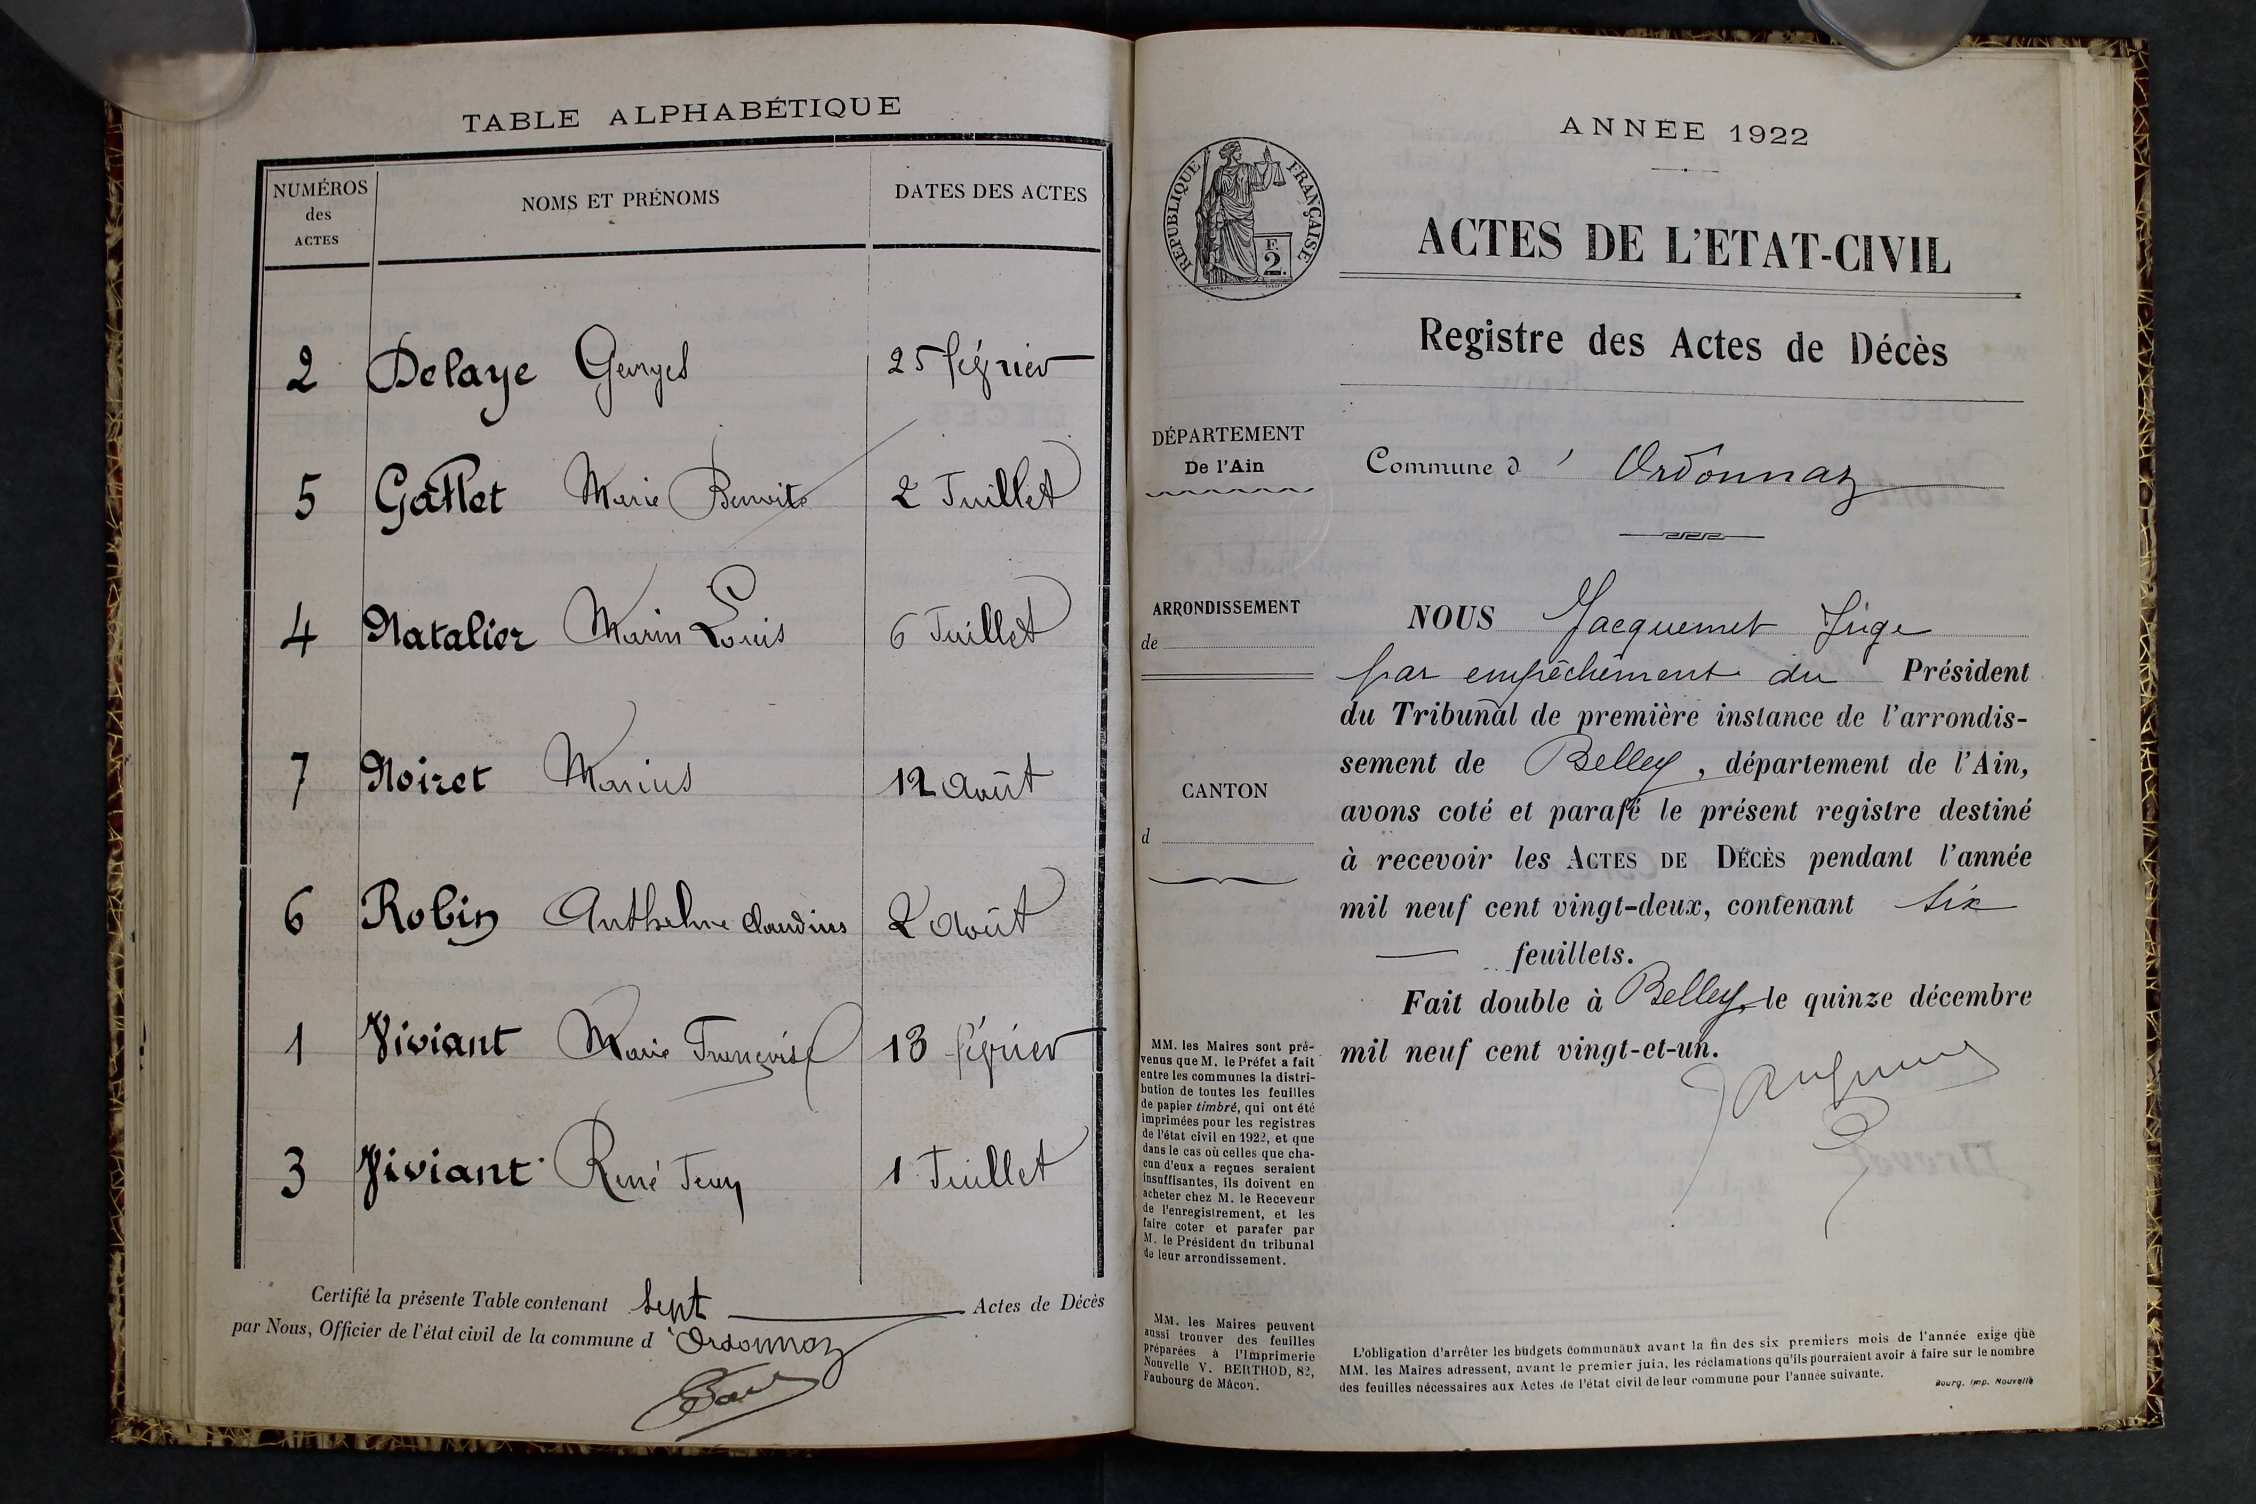 TABLE ALPHABÉTIQUE
NUMÉROS des ACTES
NOMS ET PRÉNOMS
DATES DES ACTES
2 Delaye Georges 25 février
5 Gallet Marie Benoite 2 Juillet
4 Natalier Marin Louis 6 Juillet
7 Noiret Marius 12 Août
6 Robin Anthelme Claudius 2 Août
1 Viviant Marie Françoise 13 février
3 Viviant René Jean 1 Juillet
Certifié la présente Table contenant sept Actes de Décès
par Nous, Officier de l'état civil de la commune d'Ordonnaz
ANNÉE 1922
RÉPUBLIQUE FRANÇAISE
F.
2.
ACTES DE L'ETAT-CIVIL
Registre des Actes de Décès
DÉPARTEMENT
De l'Ain
Commune d' Ordonnaz
ARRONDISSEMENT
de
CANTON
d
NOUS Jacquemet Juge
par empêchement du Président
du Tribunal de première instance de l'arrondis-
sement de Belley, département de l'Ain,
avons coté et parafé le présent registre destiné
à recevoir les ACTES DE DÉCÈS pendant l'année
mil neuf cent vingt-deux, contenant six
feuillets.
Fait double à Belley, le quinze décembre
mil neuf cent vingt-et-un.
MM. les Maires sont pré-
venus que M. le Préfet a fait
entre les communes la distri-
bution de toutes les feuilles
de papier timbré, qui ont été
imprimées pour les registres
de l'état civil en 1922, et que
dans le cas où celles que cha-
cun d'eux a reçues seraient
insuffisantes, ils doivent en
acheter chez M. le Receveur
de l'enregistrement, et les
faire coter et parafer par
M. le Président du tribunal
de leur arrondissement.
MM. les Maires peuvent
aussi trouver des feuilles
préparées à l'Imprimerie
Nouvelle V. BERTHOD, 82,
Faubourg de Mâcon.
L'obligation d'arrêter les budgets communaux avant la fin des six premiers mois de l'année exige que
MM. les Maires adressent, avant le premier juin, les réclamations qu'ils pourraient avoir à faire sur le nombre
des feuilles nécessaires aux Actes de l'état civil de leur commune pour l'année suivante.
Bourg, Imp. Nouvelle